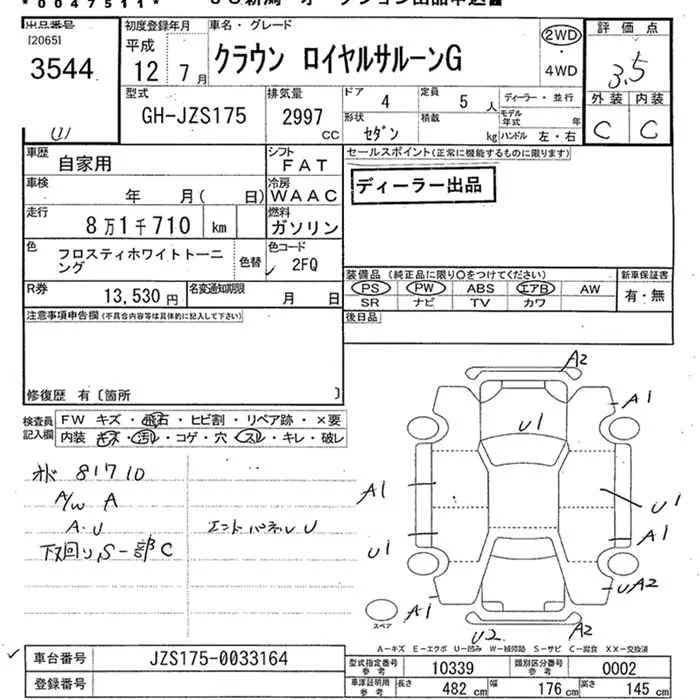 *0047511*
出品番号
[2065]
3544
(1)
初度登録年月
平成
12年 7月
車名・グレード
クラウン ロイヤルサルーンG
2WD
・
4WD
評価点
3.5
外装 内装
C C
型式
GH-JZS175
排気量
2997
CC
ドア 4
定員 5人
形状 セダン
積載 kg
ディーラー・並行
モデル年式 年
ハンドル 左・右
車歴
自家用
シフト
FAT
車検
年 月( 日)
冷房
WAAC
走行
8万1千710 km
燃料
ガソリン
色
フロスティホワイトトーニング
色替
色コード
2FQ
R券
13,530円
名変通知期限
月 日
セールスポイント(正常に機能するものに限ります)
ディーラー出品
装備品(純正品に限り○をつけてください)
PS PW ABS エアB AW
SR ナビ TV カワ
新車保証書
有・無
後日品
注意事項申告欄(不具合内容等は具体的に記入して下さい)
修復歴 有〔箇所 〕
検査員記入欄
FW キズ・飛石・ヒビ割・リペア跡・×要
内装 キズ・汚レ・コゲ・穴・スレ・キレ・破レ
オド 81710
A/W A
A・U
エンドパネル U
下回り,S一部C
A2
A1
U1
A1
U1
U1
A1
UA2
A1
U2
A2
スペア
A-キズ E-エクボ U-凹み W-補修跡 S-サビ C-腐食 XX-交換済
車台番号
JZS175-0033164
登録番号
型式指定番号 参考
10339
類別区分番号 参考
0002
車庫証明用 参考
長さ 482cm 幅 176cm 高さ 145cm